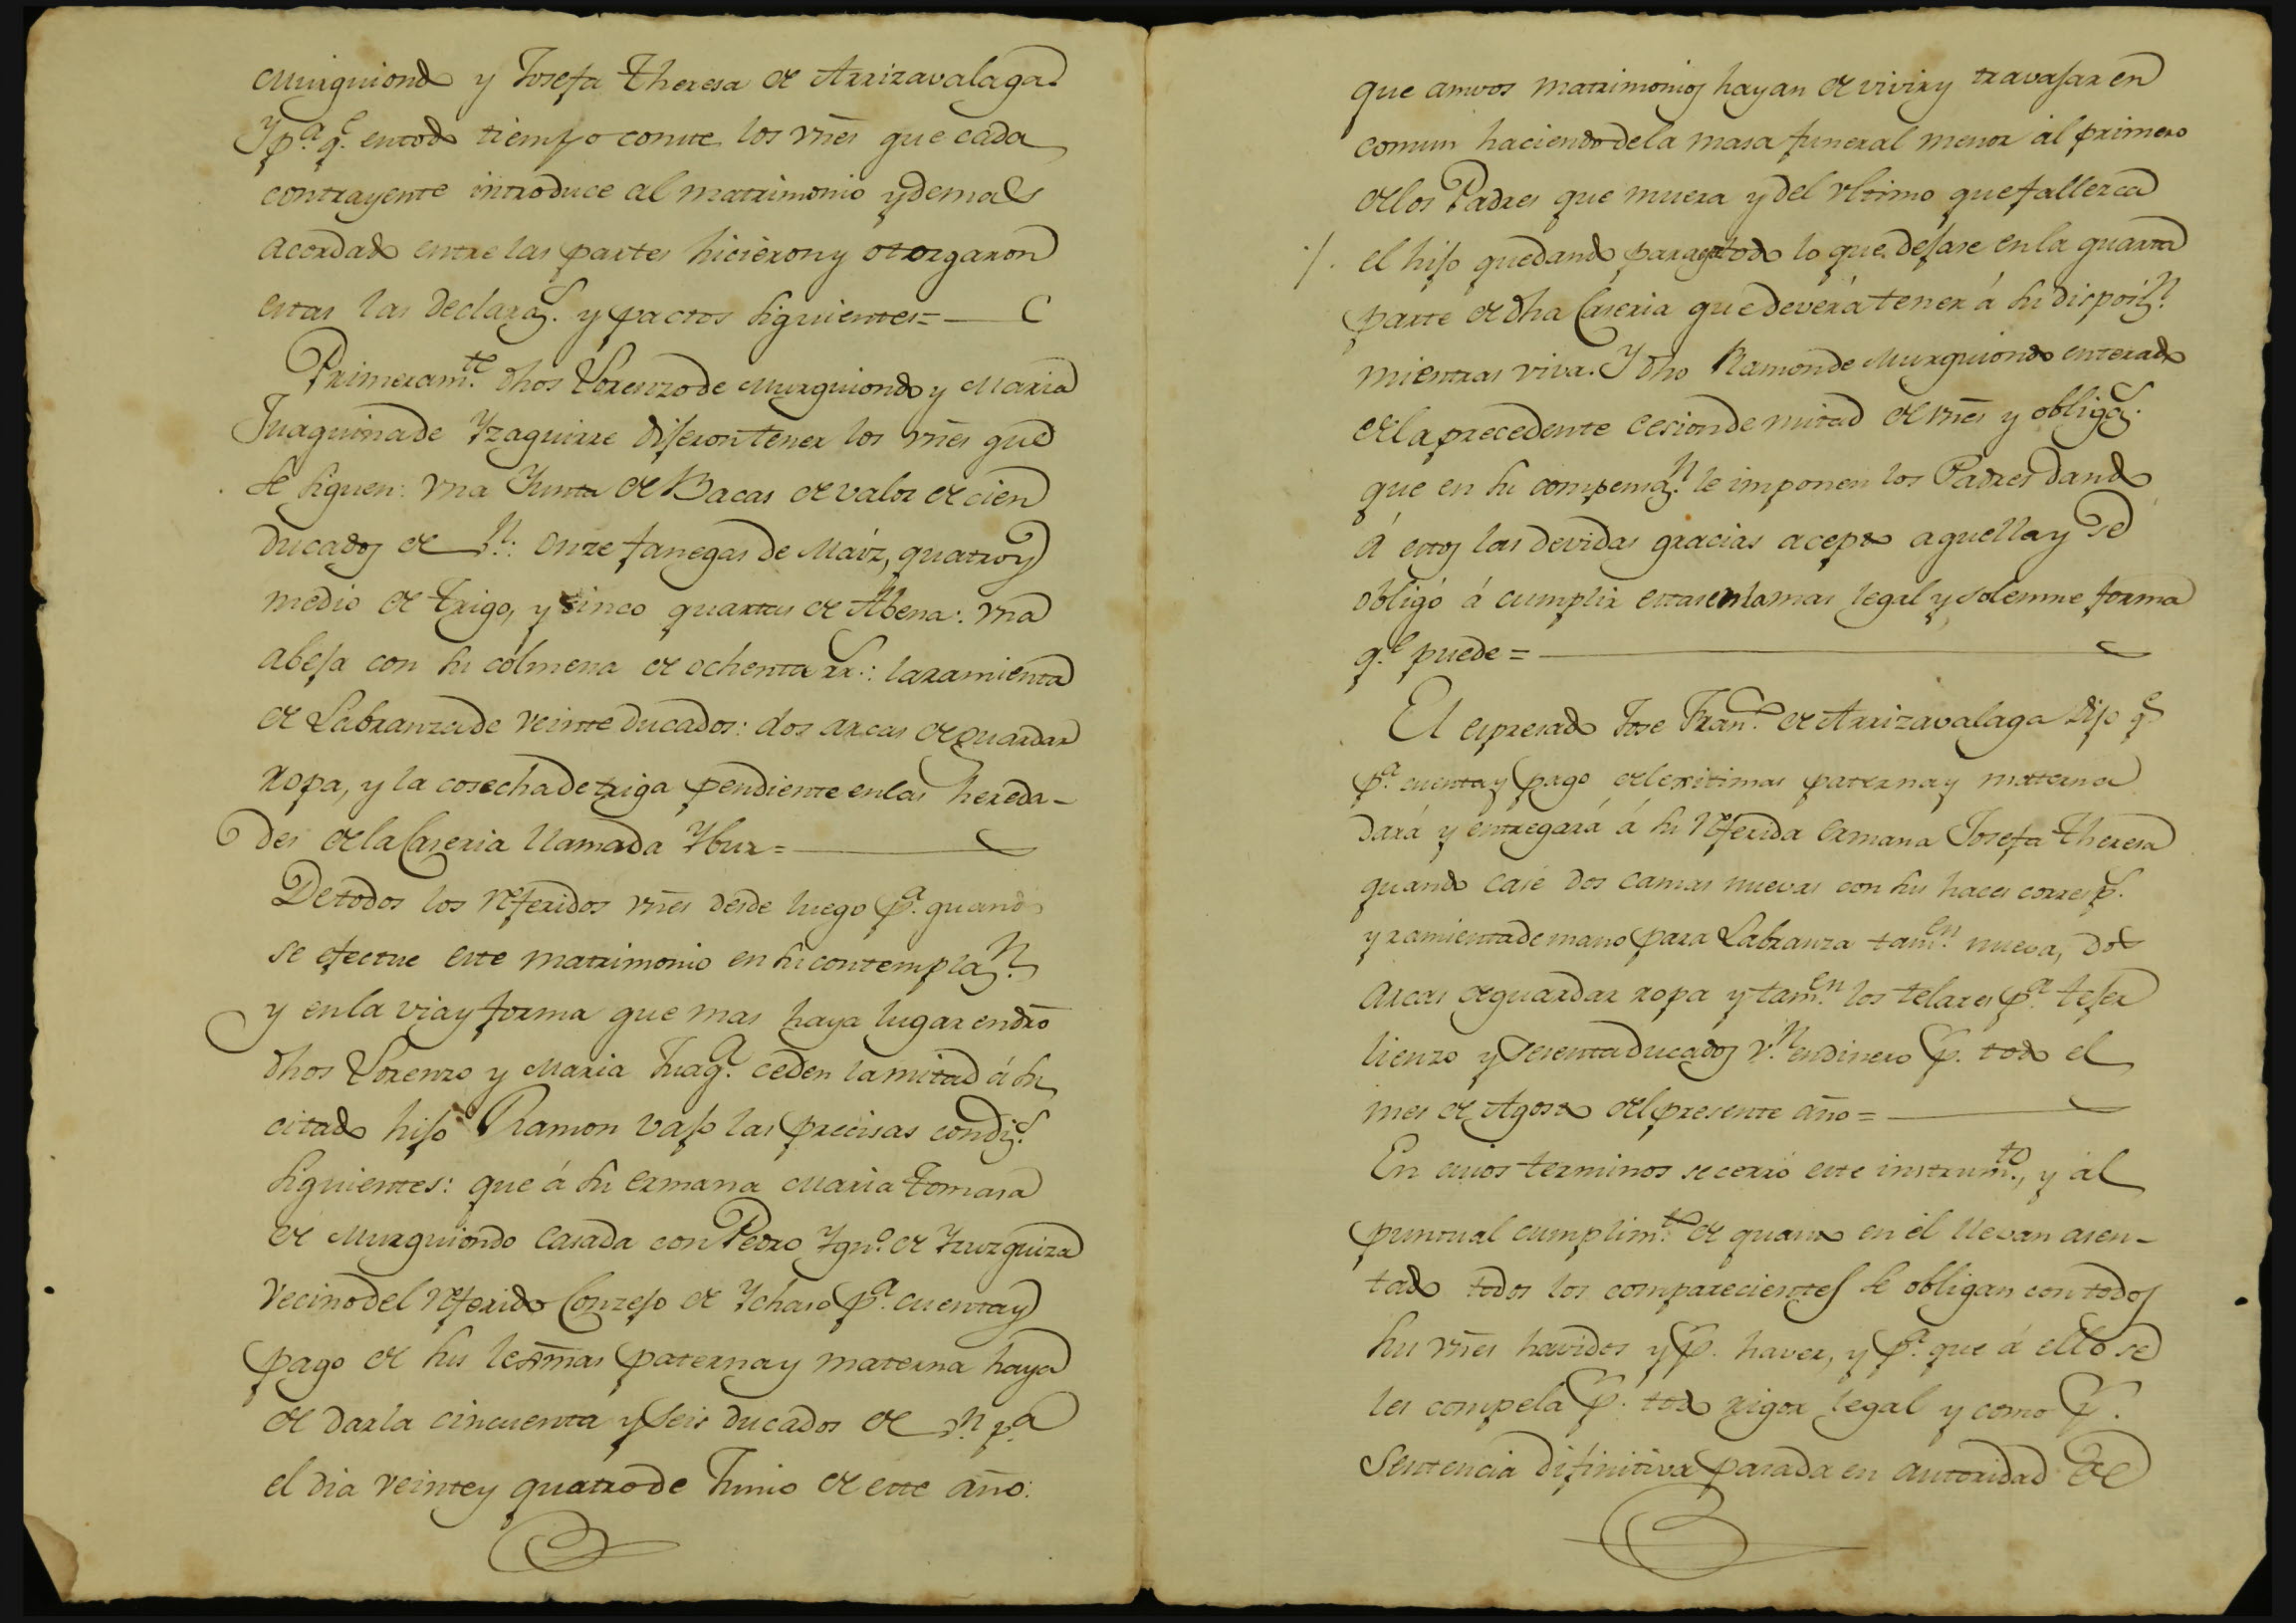 Murguiondo y Josefa Theresa de Arrizavalaga.
Y p.ª q.e en todo tiempo conste los vñes que cada
contrayente introduce al matrimonio y demas
acordado entre las partes hicieron y otorgaron
estas las declaraz.s y pactos siguientes =
Primeram.te dhos Lorenzo de Murguiondo y Maria
Juaquina de Yzaguirre dijeron tener los vñes que
se siguen: vna Yunta de Bacas de valor de cien
ducados de v.n: onze fanegas de Máiz, quatro y
medio de trigo, y cinco quartas de Abena: vna
abeja con su colmena de ochenta rr.s: la ramienta
de Labranza de veinte ducados: dos arcas de guardar
ropa, y la cosecha de triga pendiente en las hereda-
des de la Caseria llamada Ybur =
De todos los referidos vñes desde luego p.ª quando
se efectue este matrimonio en su contemplaz.n
y en la via y forma que mas haya lugar en dro
dhos Lorenzo y Maria Juaq.ª ceden la mitad á su
citado hijo Ramon vajo las precisas condiz.s
siguientes: que á su ermana Maria Tomasa
de Murguiondo casada con Pedro Ygn.o de Yzurguiza
vecino del referido Conzejo de Ychaso p.ª cuenta y
pago de sus lexmas paterna y materna haya
de darla cincuenta y seis ducados de v.n p.ª
el dia veinte y quatro de Junio de este año:
que amvos matrimonios hayan de vivir y travajar en
comun haciendo de la masa funeral menor al primero
de los Padres que muera y del vltimo que fallezca
el hijo quedando para esto todo lo que dejare en la quarta
parte de dha Caseria que deverá tener á su disposiz.n
mientras viva. Y dho Ramon de Murguiondo enterado
de la precedente cesion de mitad de vñes y obligaz.s
que en su compensaz.n le imponen los Padres dando
á estos las devidas gracias acepto aquella y se
obligó á cumplir estas en la mas legal y solemne forma
q.e puede =
El espresado Jose Fran.co de Arrizavalaga dijo q.e
p.ª cuenta y pago de lexitimas paterna y materna
dará y entregará á su referida ermana Josefa Theresa
quando case dos camas nuevas con sus haces corresp.s
y ramienta de mano para Labranza tam.en nueva, dos
arcas de guardar ropa y tam.en los telares p.ª tejer
lienzo y sesenta ducados v.n en dinero p.r todo el
mes de Agosto del presente año =
En cuios terminos se cerró este instrum.to, y al
puntual cumplim.to de quanto en él llevan asen-
tado todos los comparecientes se obligan con todos
sus vñes havidos y p.r haver, y p.ª que á ello se
les compela p.r todo rigor legal y como p.r
sentencia difinitiva pasada en autoridad de